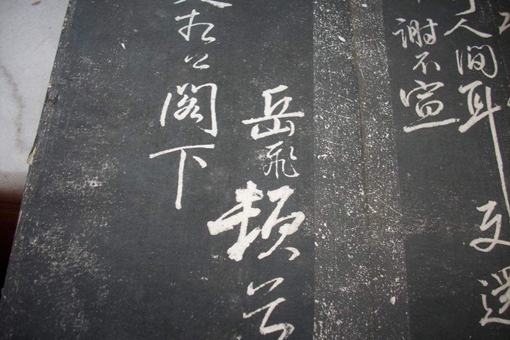 人間耳
謝不宣
岳飛頓首
相公閣下